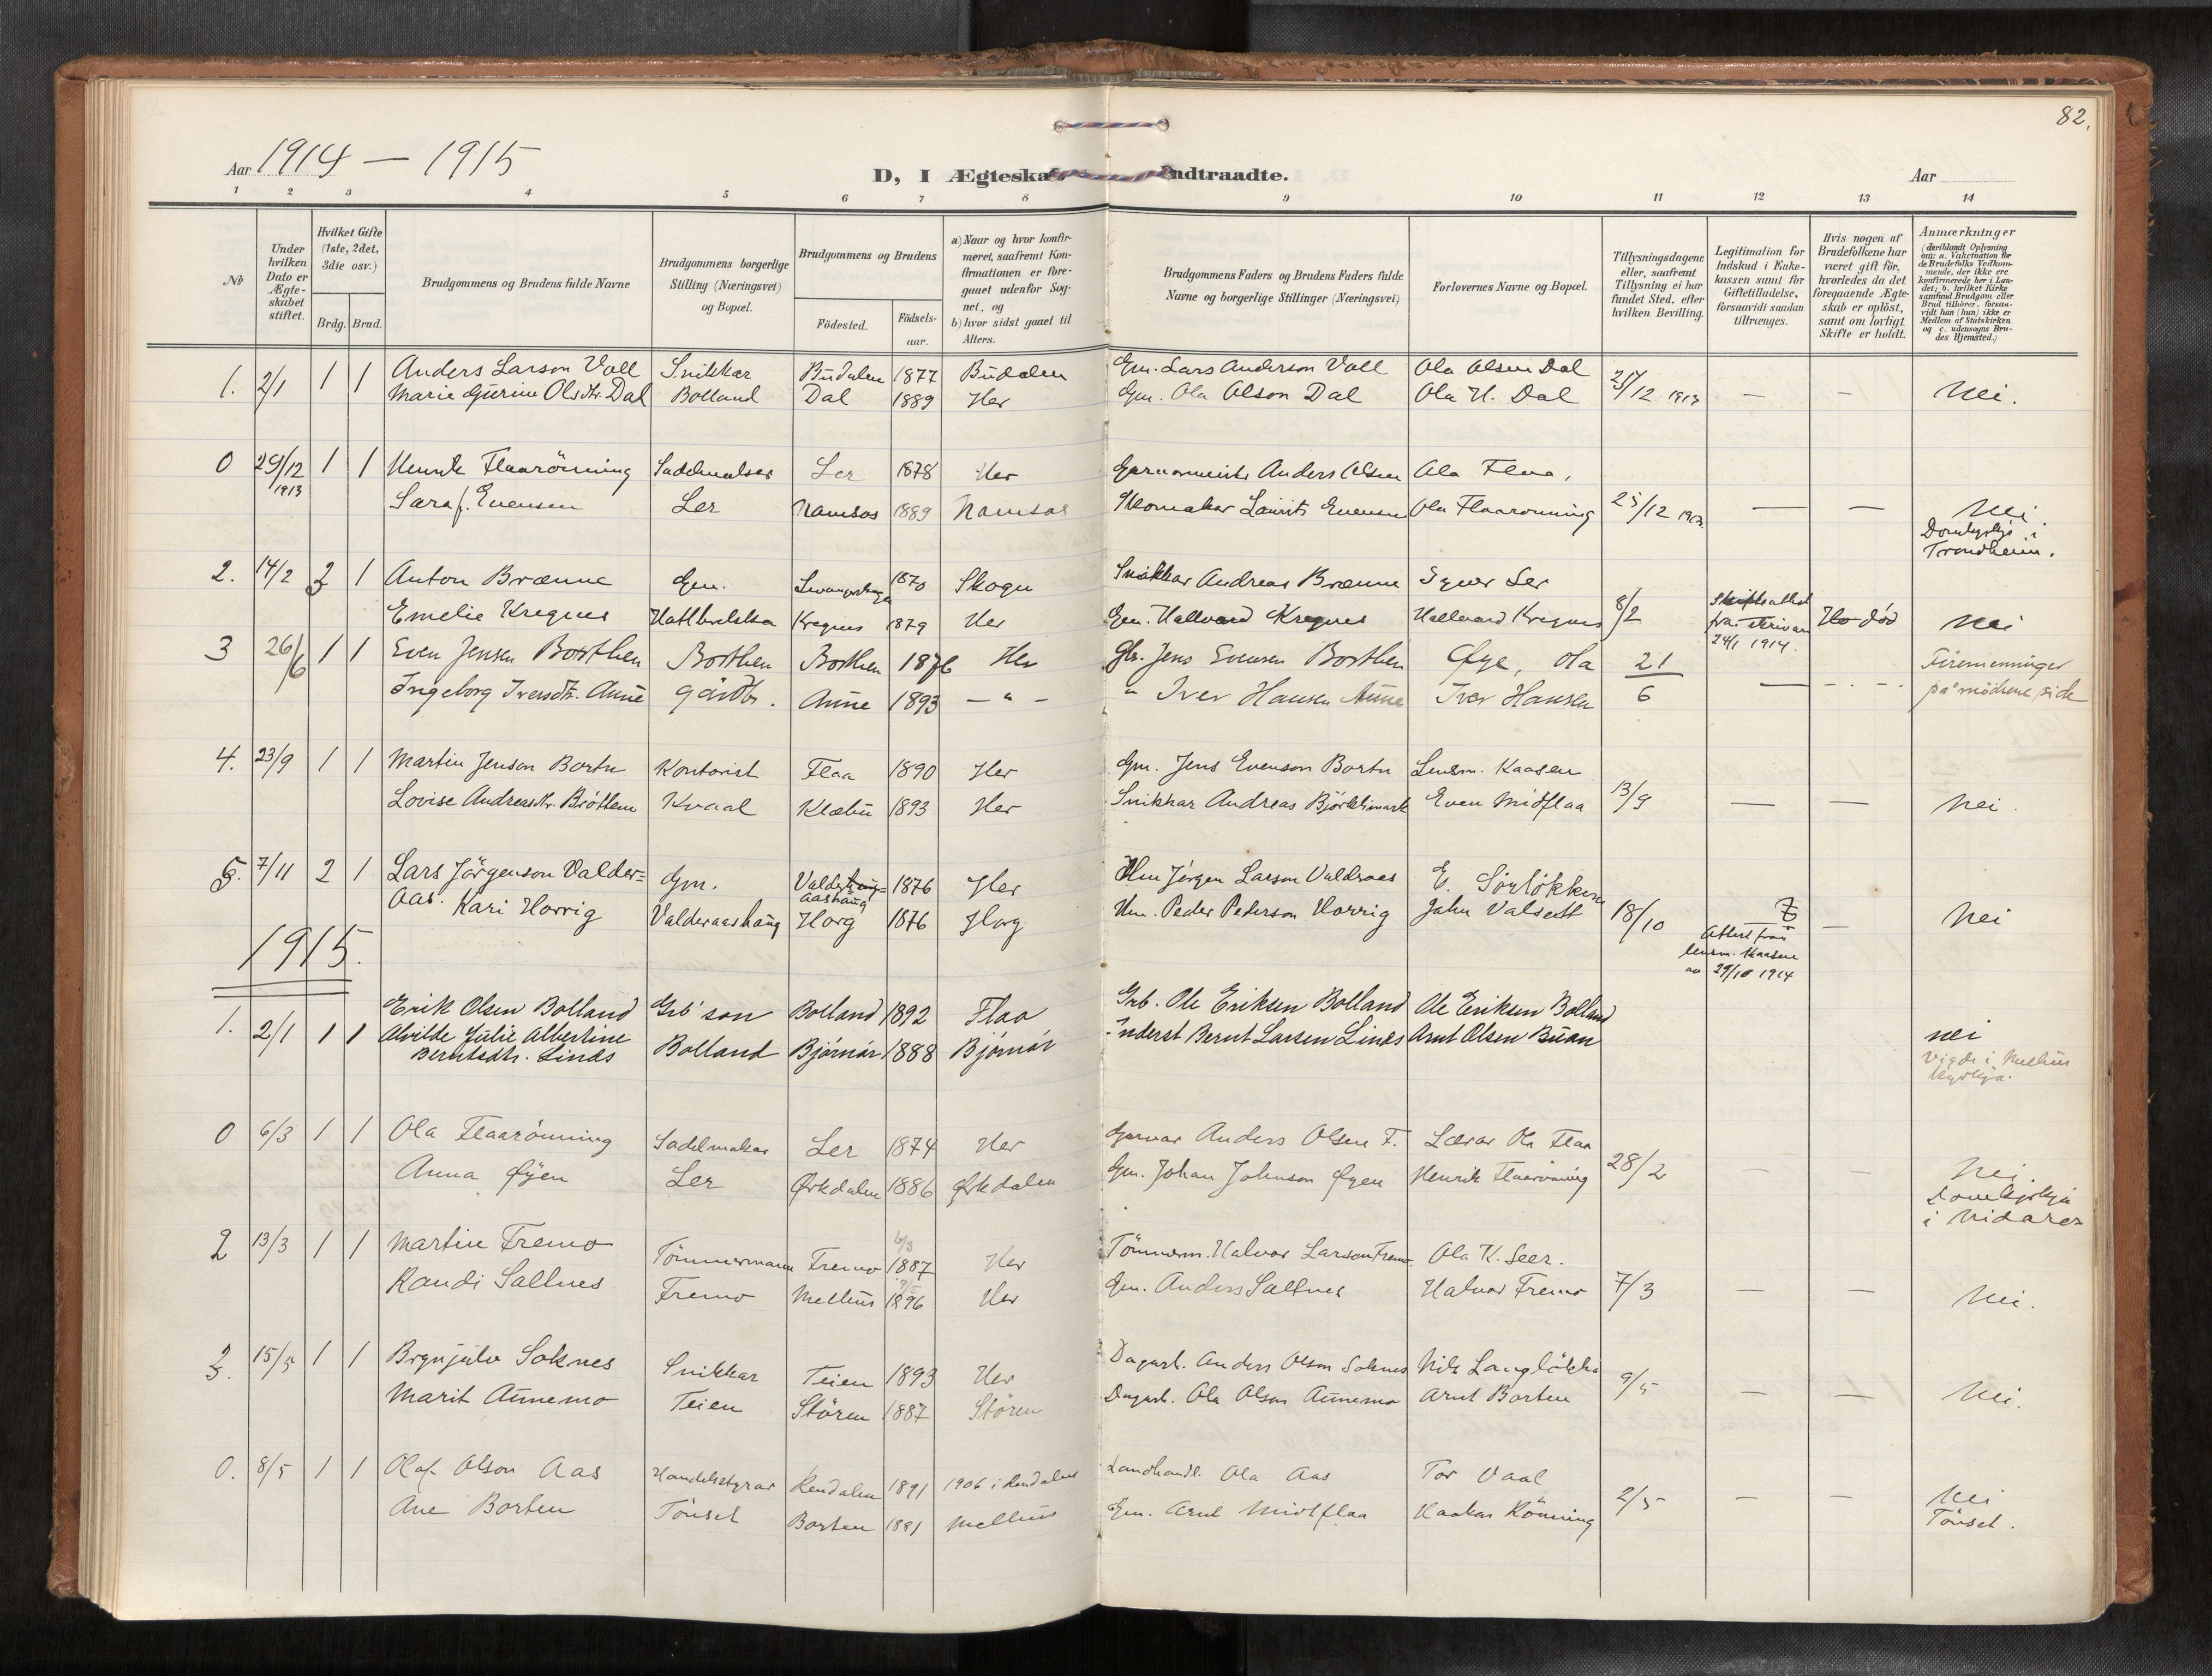 82.
Aar 1914 — 1915
D, I Ægteskab Indtraadte.
Aar
1 2 3 4 5 6 7 8 9 10 11 12 13 14
No
Under hvilken Dato er Ægteskabet stiftet.
Hvilket Gifte (1ste, 2det, 3die osv.)
Brdg. Brud.
Brudgommens og Brudens fulde Navne
Brudgommens borgerlige Stilling (Næringsvei) og Bopæl.
Brudgommens og Brudens
Födested.
Födsels-aar.
a) Naar og hvor konfirmeret, saafremt Konfirmationen er foregaaet udenfor Sognet, og
b) hvor sidst gaaet til Alters.
Brudgommens Faders og Brudens Faders fulde Navne og borgerlige Stillinger (Næringsvei)
Forlovernes Navne og Bopæl.
Tillysningsdagene eller, saafremt Tillysning ei har fundet Sted, efter hvilken Bevilling.
Legitimation for Indskud i Enkekassen samt for Giftetilladelse, forsaavidt saadan tiltrænges.
Hvis nogen af Brudefolkene har været gift för, hvorledes da det foregaaende Ægteskab er oplöst, samt om lovligt Skifte er holdt.
Anmærkninger
(deriblandt Oplysning om: a. Vakcination for de Brudefolks Vedkommende, der ikke ere konfirmerede her i Landet; b. hvilket Kirkesamfund Brudgom eller Brud tilhörer, forsaavidt han (hun) ikke er Medlem af Statskirken og c. udensogns Brudes Hjemsted.)
1. 2/1 1 1 Anders Larson Voll Snikkar Budalen 1877 Budalen Gm. Lars Anderson Voll Ola Olsen Dal
Marie Gurine Olsdtr. Dal Bolland Dal 1889 Her Gm. Ola Olson Dal Ola H. Dal /12 1913 — — Nei.
0 29/12 1913 1 1 Henrik Flaarönning Sadelmaker Ler 1878 Her Garvarmeister Anders Olsen Ola Flaa,
Sara f. Evensen Ler Namsos 1889 Namsos Skomaker Laurits Evensen Ola Flaarönning 25/12 1913 — — Nei.
Domkyrkja i
Trondheim.
2. 14/2 2 1 Anton Brænne Gm. 1870 Skogn Snikkar Andreas Brænne Syver Ler
Emelie Kregnes Kregnes 1879 Her Gm. Hallvard Kregnes Hallvard Kregnes 8/2 Skifteattest fra skrivar 24/1 1914. Ho död Nei
3 26/6 1 1 Even Jensen Borthen Borthen Borthen 1876 Her Gbr. Jens Evensen Borthen Øye, Ola 21 Firemenninger
Ingeborg Iversdtr. Aune gårdbr. Aune 1893 — " — " Iver Hansen Aune Iver Hansen 6 — - . - på mödrene side
4. 23/9 1 1 Martin Jenson Bortn Kontorist Flaa 1890 Her Gm. Jens Evenson Bortn Lensm. Kaasen
Lovise Andreasdtr. Bröttem Kvaal Klæbu 1893 Her Snikkar Andreas Björklimark Even Midtflaa 13/9 — — Nei.
5. 7/11 2 1 Lars Jörgenson Valder= Gm. Valderaashaug 1876 Her Jörgen Larson Valdraas E. Sörlökken
aas. Kari Horrig Valderaashaug Horg 1876 Horg Peder Pederson Horrig John Valsett 18/10 Attest fraa lensm. Kaasen aa 29/10 1914 — Nei
1915.
1. 2/1 1 1 Erik Olsen Bolland Grb' son Bolland 1892 Flaa Grb. Ole Eriksen Bolland Ole Eriksen Bolland
Alvilde Julie Albertine
Berntsdtr. Linds Bolland Björnör 1888 Björnör Inderst Bernt Larsen Linds Arnt Olsen Buan nei
Vigde i Melhus
kyrkja.
0 6/3 1 1 Ola Flaarönning Sadelmakar Ler 1874 Her Garvar Anders Olsen F. Lærar Ola Flaa
Anna Øyen Ler Ørkdalen 1886 Ørkdalen Gm. Johan Johnson Øyen Henrik Flaarönning 28/2 — — Nei.
Domkyrkja
i Nidaros
2 13/3 1 1 Martin Fremo Tömmermann Fremo 6/3 1887 Her Tömmerm. Halvor Larson Fremo Ola K. Leer.
Randi Saltnes Fremo Melhus 1896 Her Gm. Anders Saltnes Halvor Fremo 7/3 — — Nei.
3. 15/5 1 1 Brynjulv Soknes Snikkar Teien 1893 Her Dagarb. Anders Olson Soknes Nils Langlökka
Marit Aunemo Teien Stören 1887 Stören Dagarb. Ola Olson Aunemo Arnt Borten 9/5 — — Nei.
0. 8/5 1 1 Olaf Olson Aas Handelstyrar Rendalen 1891 1906 i Rendalen Landhandl. Ola Aas Tor Vaal
Ane Borten Tönset Borten 1891 Melhus Gm. Arnt Midtflaa Haakon Rönning 2/5 — — Nei
Tönset.